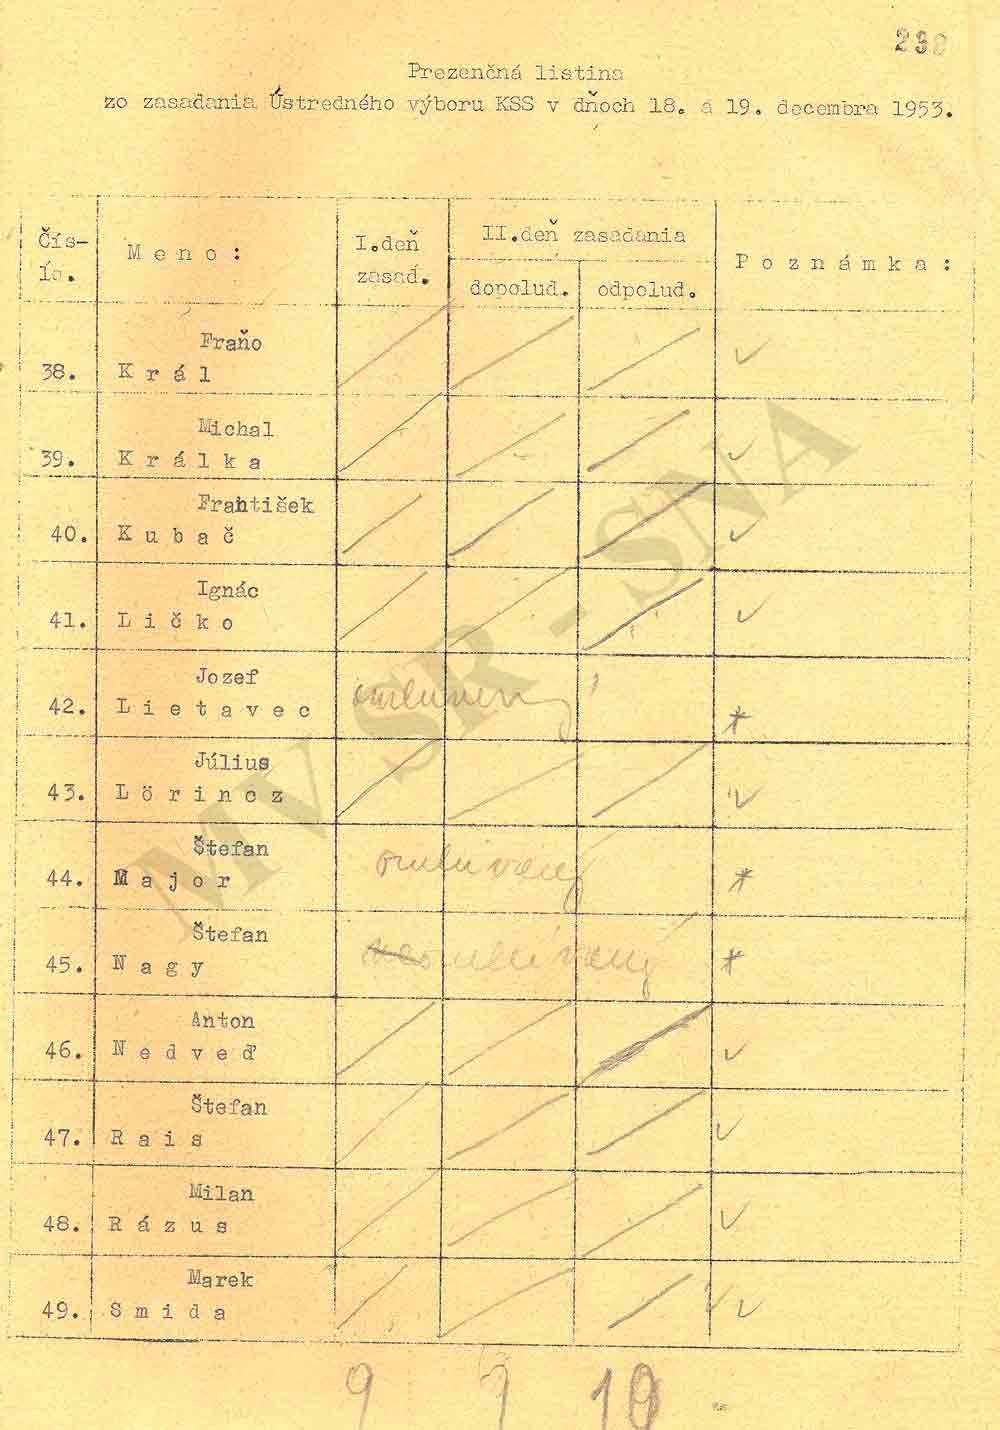 290
Prezenčná listina
zo zasadania Ústredného výboru KSS v dňoch 18. a 19. decembra 1953.
Čís-
lo.
Meno:
I.deň
zasad.
II.deň zasadania
dopolud.
odpolud.
Poznámka:
38. Fraňo
Král
39. Michal
Králka
40. František
Kubač
41. Ignác
Ličko
42. Jozef
Lietavec omluvený
43. Július
Lörincz
44. Štefan
Major omluvený
45. Štefan
Nagy neomluvený
46. Anton
Nedveď
47. Štefan
Rais
48. Milan
Rázus
49. Marek
Smida
9 9 10
MV SR - SNA